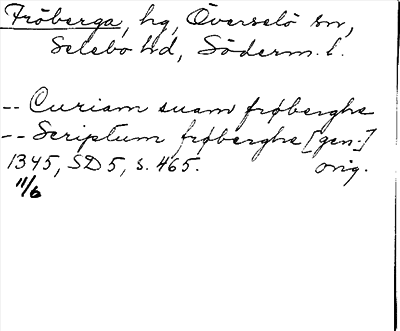 Fröberga, hg, Överselö sn,
Selebo hd, Söderm. l.
-- Curiam suam frøberghe
-- Scriptum frøberghe [gen.]
1345, SD 5, s. 465. orig.
11/6